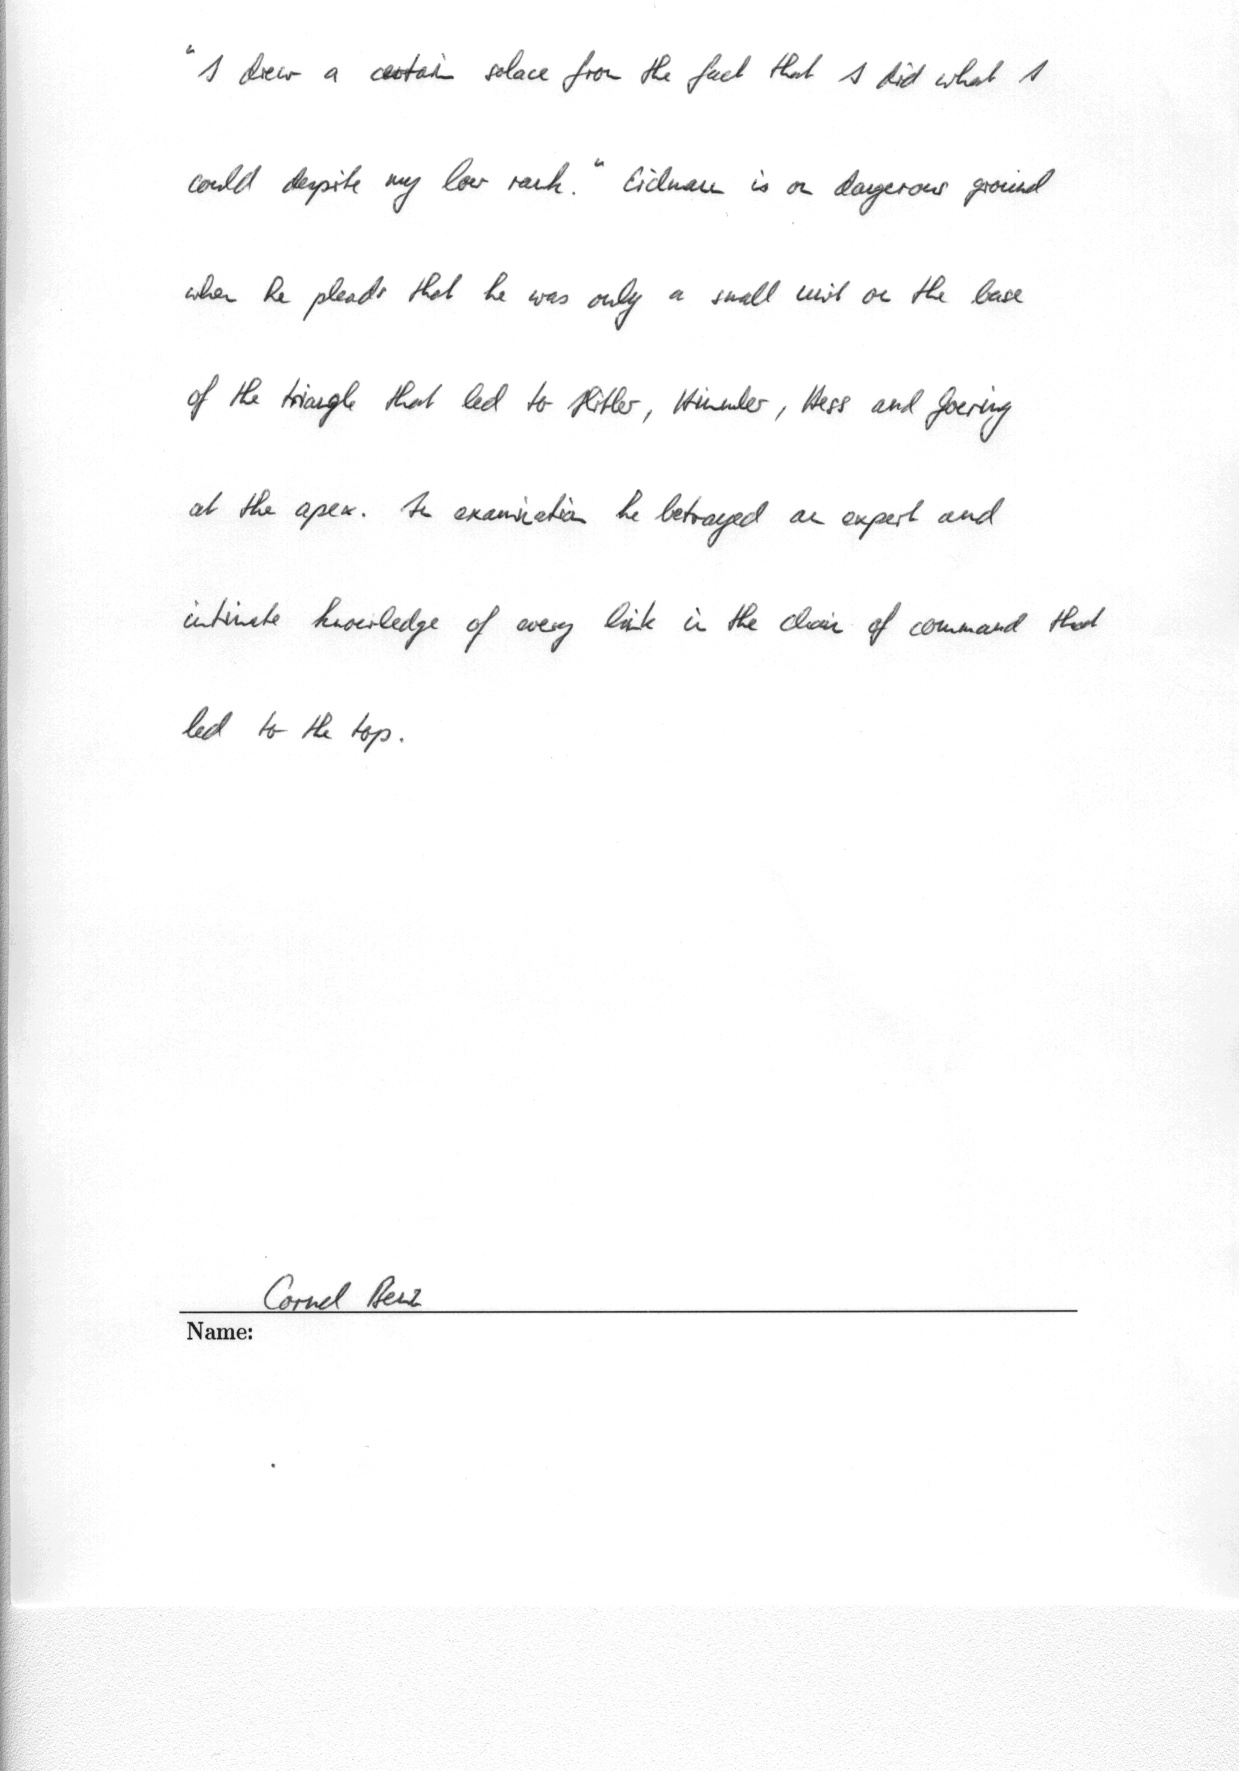 "I drew a certain solace from the fact that I did what I
could despite my low rank." Eichmann is on dangerous ground
when he pleads that he was only a small unit on the base
of the triangle that led to Hitler, Himmler, Hess and Goering
at the apex. In examination he betrayed an expert and
intimate knowledge of every link in the chain of command that
led to the top.
Cornel Benz
Name: